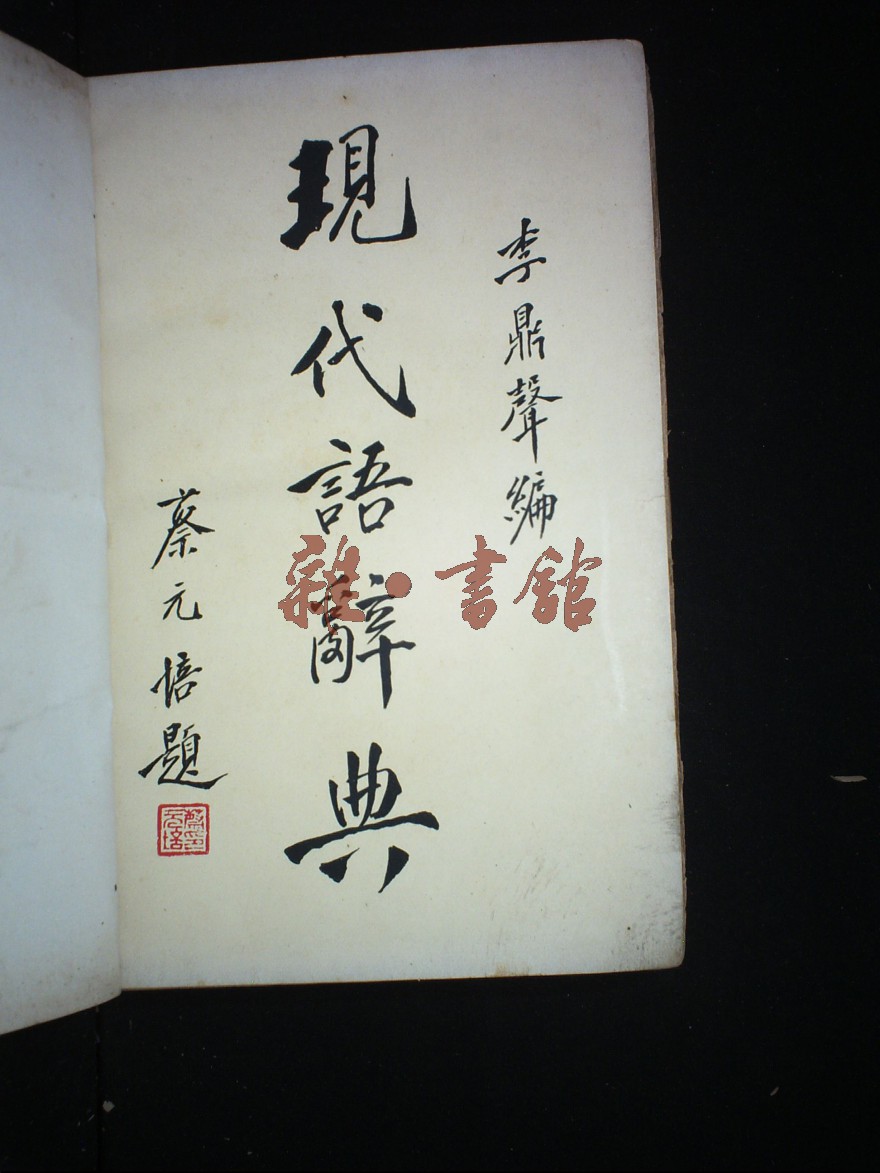 李鼎聲編
現代語辭典
蔡元培題
蔡元培印
雜·書館